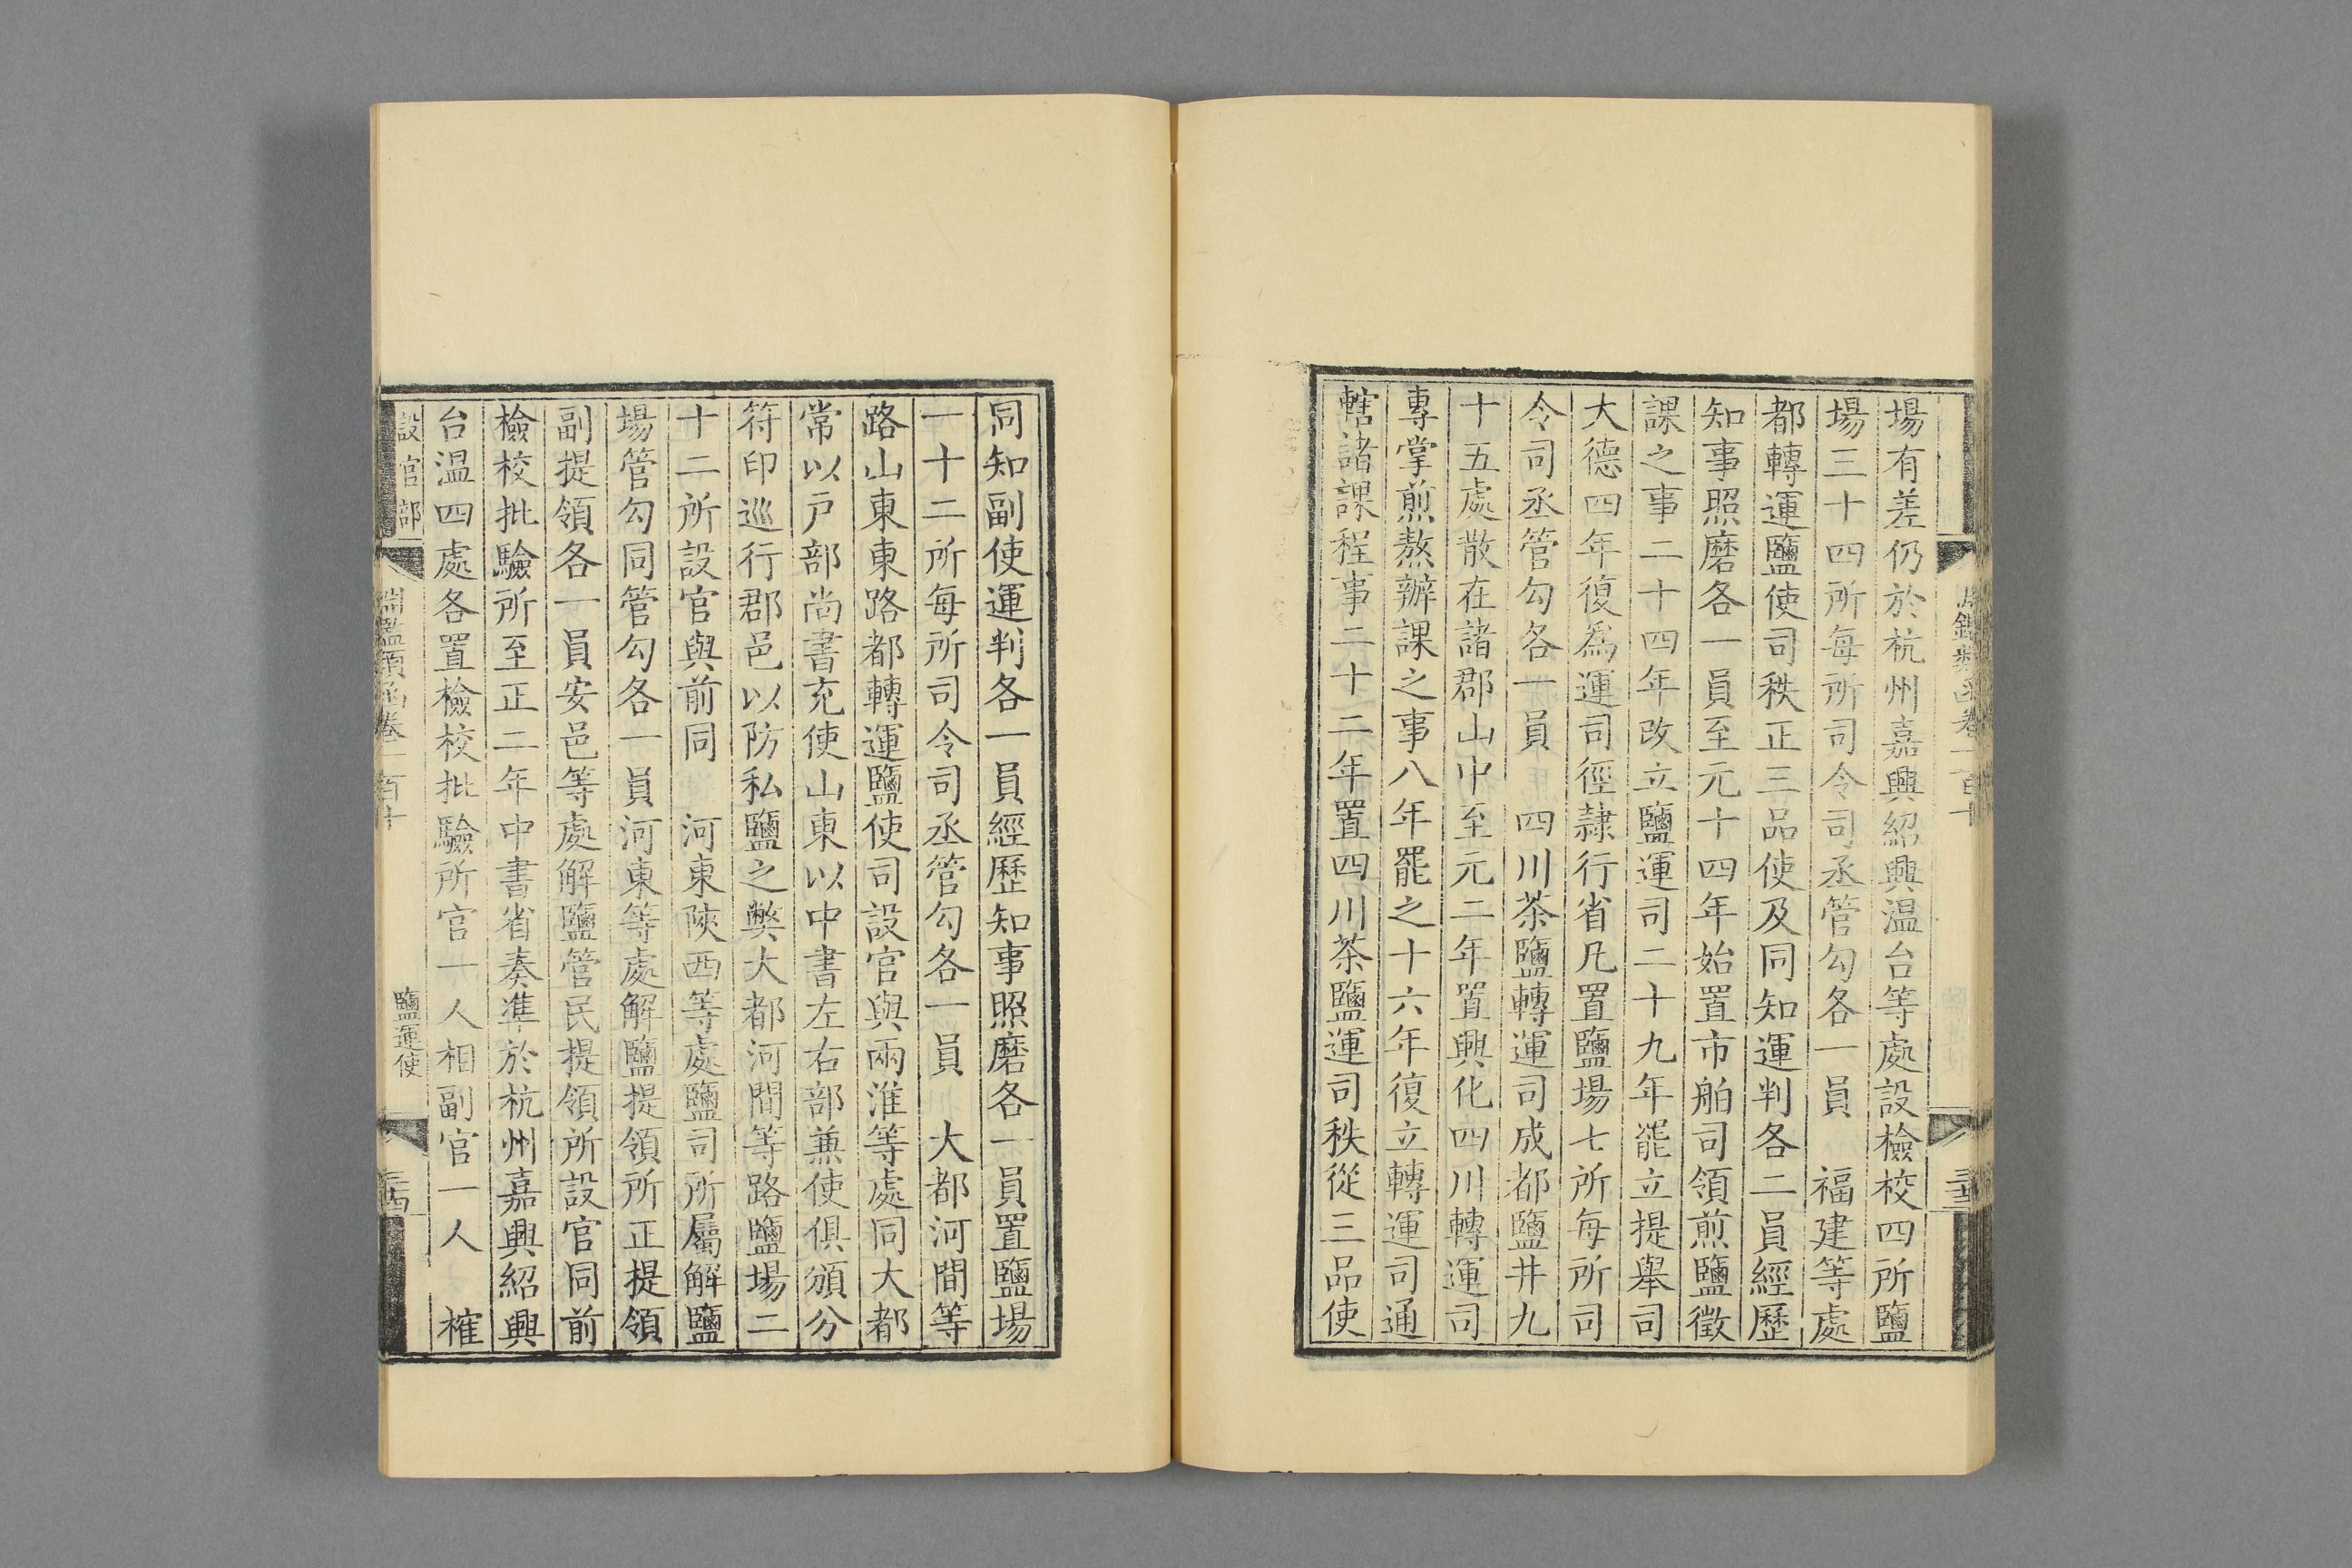 場有差仍於杭州嘉興紹興温台等處設檢校四所鹽
場三十四所每所司令司丞管勾各一員　福建等處
都轉運鹽使司秩正三品使及同知運判各二員經歷
知事照磨各一員至元十四年始置市舶司領煎鹽徵
課之事二十四年改立鹽運司二十九年罷立提舉司
大德四年復爲運司徑隷行省凡置鹽場七所每所司
令司丞管勾各一員　四川茶鹽轉運司成都鹽井九
十五處散在諸郡山中至元二年置興化四川轉運司
專掌煎熬辦課之事八年罷之十六年復立轉運司通
轄諸課程事二十二年置四川茶鹽運司秩從三品使
同知副使運判各一員經歷知事照磨各一員置鹽場
一十二所每所司令司丞管勾各一員　大都河間等
路山東東路都轉運鹽使司設官與兩淮等處同大都
常以戸部尚書充使山東以中書左右部兼使俱頒分
符印巡行郡邑以防私鹽之弊大都河間等路鹽場二
十二所設官與前同　河東陝西等處鹽司所屬解鹽
場管勾同管勾各一員河東等處解鹽提領所正提領
副提領各一員安邑等處解鹽管民提領所設官同前
檢校批驗所至正二年中書省奏準於杭州嘉興紹興
台温四處各置檢校批驗所官一人相副官一人　榷
設官部
淵鑑類函卷一百十
鹽運使